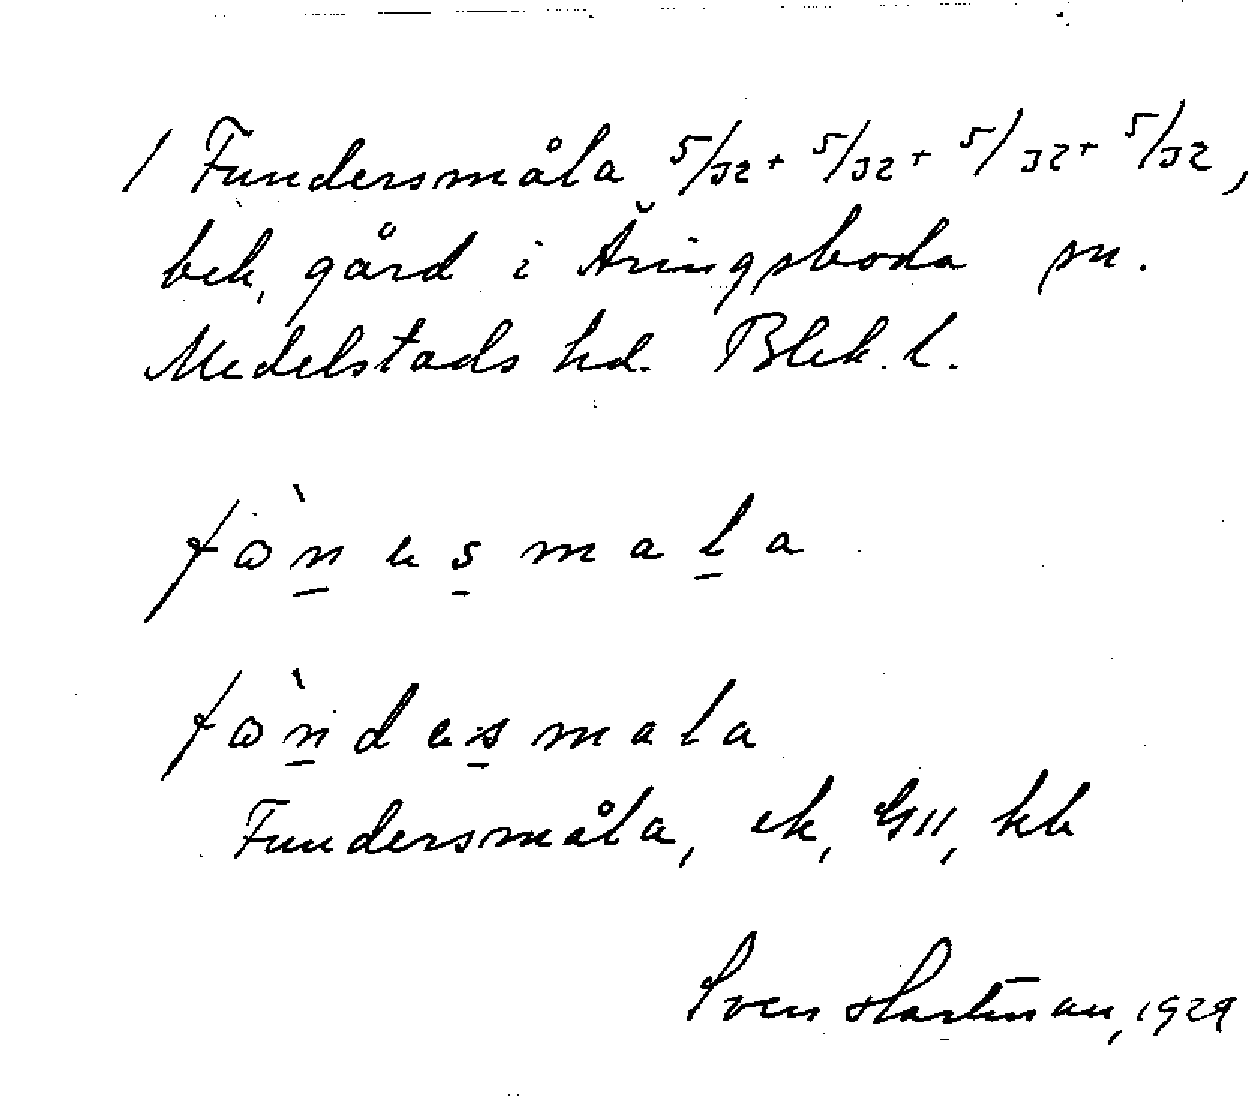 1 Fundersmåla 5/32 + 5/32 + 5/32 + 5/32,
bek. gård i Åringsboda sn.
Medelstads hd. Blek. l.
fɷ̀nɐsmala
fɷ̀ndɐsmala
Fundersmåla, ek, G11, kb
Sven Hartman, 1929